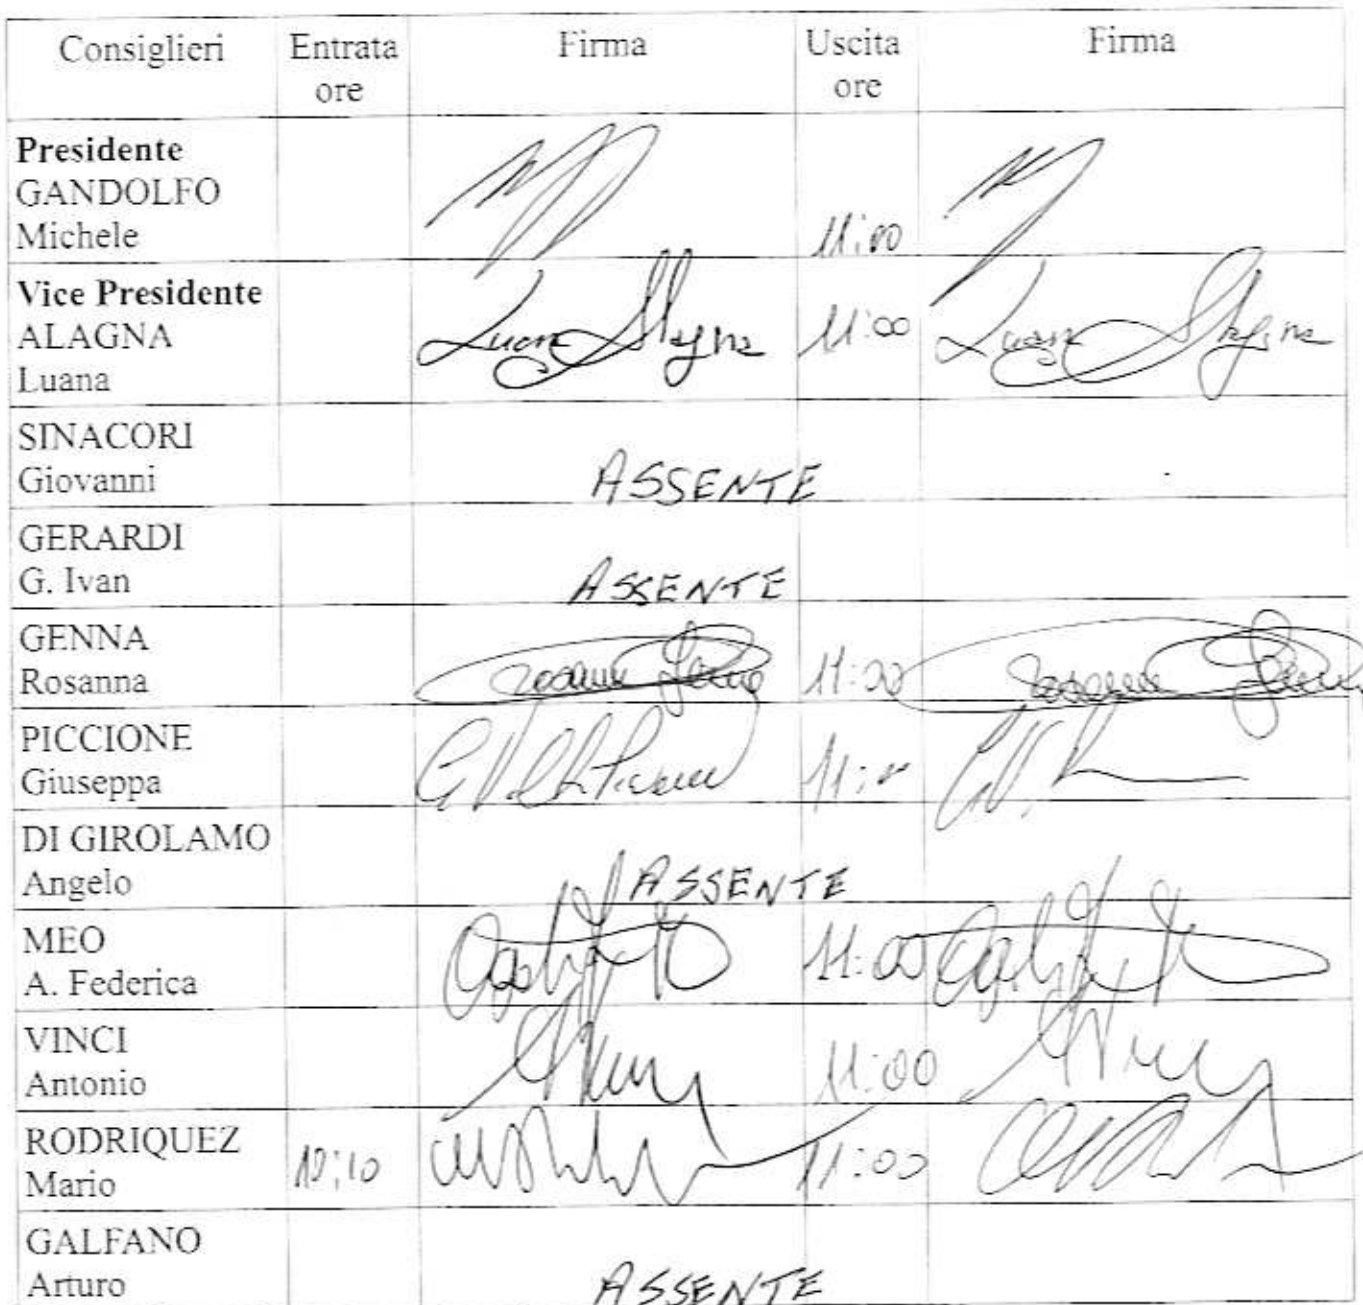 Consiglieri Entrata ore Firma Uscita ore Firma
Presidente
GANDOLFO
Michele 11:00
Vice Presidente
ALAGNA
Luana Luana Alagna 11:00 Luana Alagna
SINACORI
Giovanni ASSENTE
GERARDI
G. Ivan ASSENTE
GENNA
Rosanna Rosanna Genna 11:00 Rosanna Genna
PICCIONE
Giuseppa
DI GIROLAMO
Angelo ASSENTE
MEO
A. Federica 11:00
VINCI
Antonio 11:00
RODRIQUEZ
Mario 10:10 11:00
GALFANO
Arturo ASSENTE